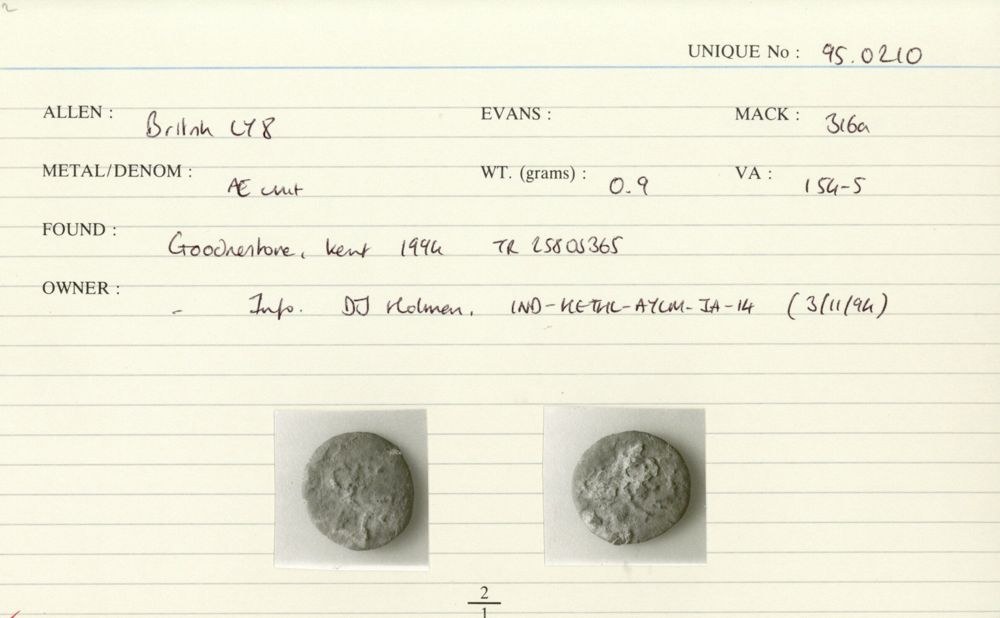 UNIQUE No : 95.0210
ALLEN : British LY8 EVANS : MACK : 316a
METAL/DENOM : Æ unit WT. (grams) : 0.9 VA : 154-5
FOUND : Goodnestone, Kent 1994 TR 25805365
OWNER : - Info. DJ Holman, (3/11/94)
2
1